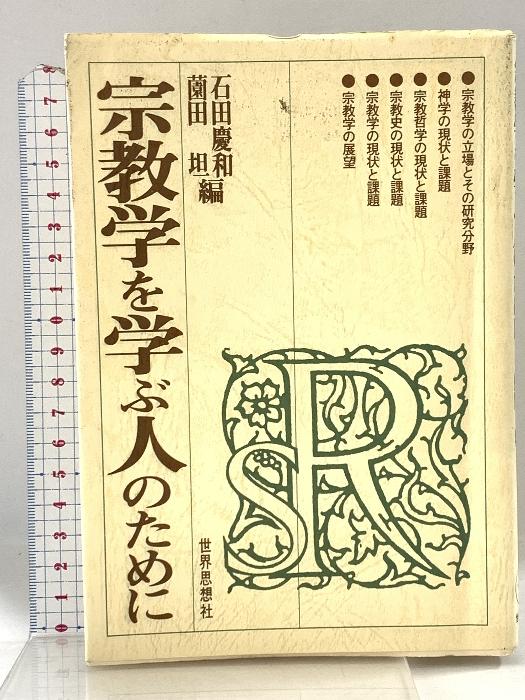 ●宗教学の立場とその研究分野
●神学の現状と課題
●宗教哲学の現状と課題
●宗教史の現状と課題
●宗教学の現状と課題
●宗教学の展望
石田慶和
薗田 坦 編
宗教学を学ぶ人のために
RS
世界思想社
8 7 6 5 4 3 2 1 0 9 8 7 6 5 4 3 2 1 0